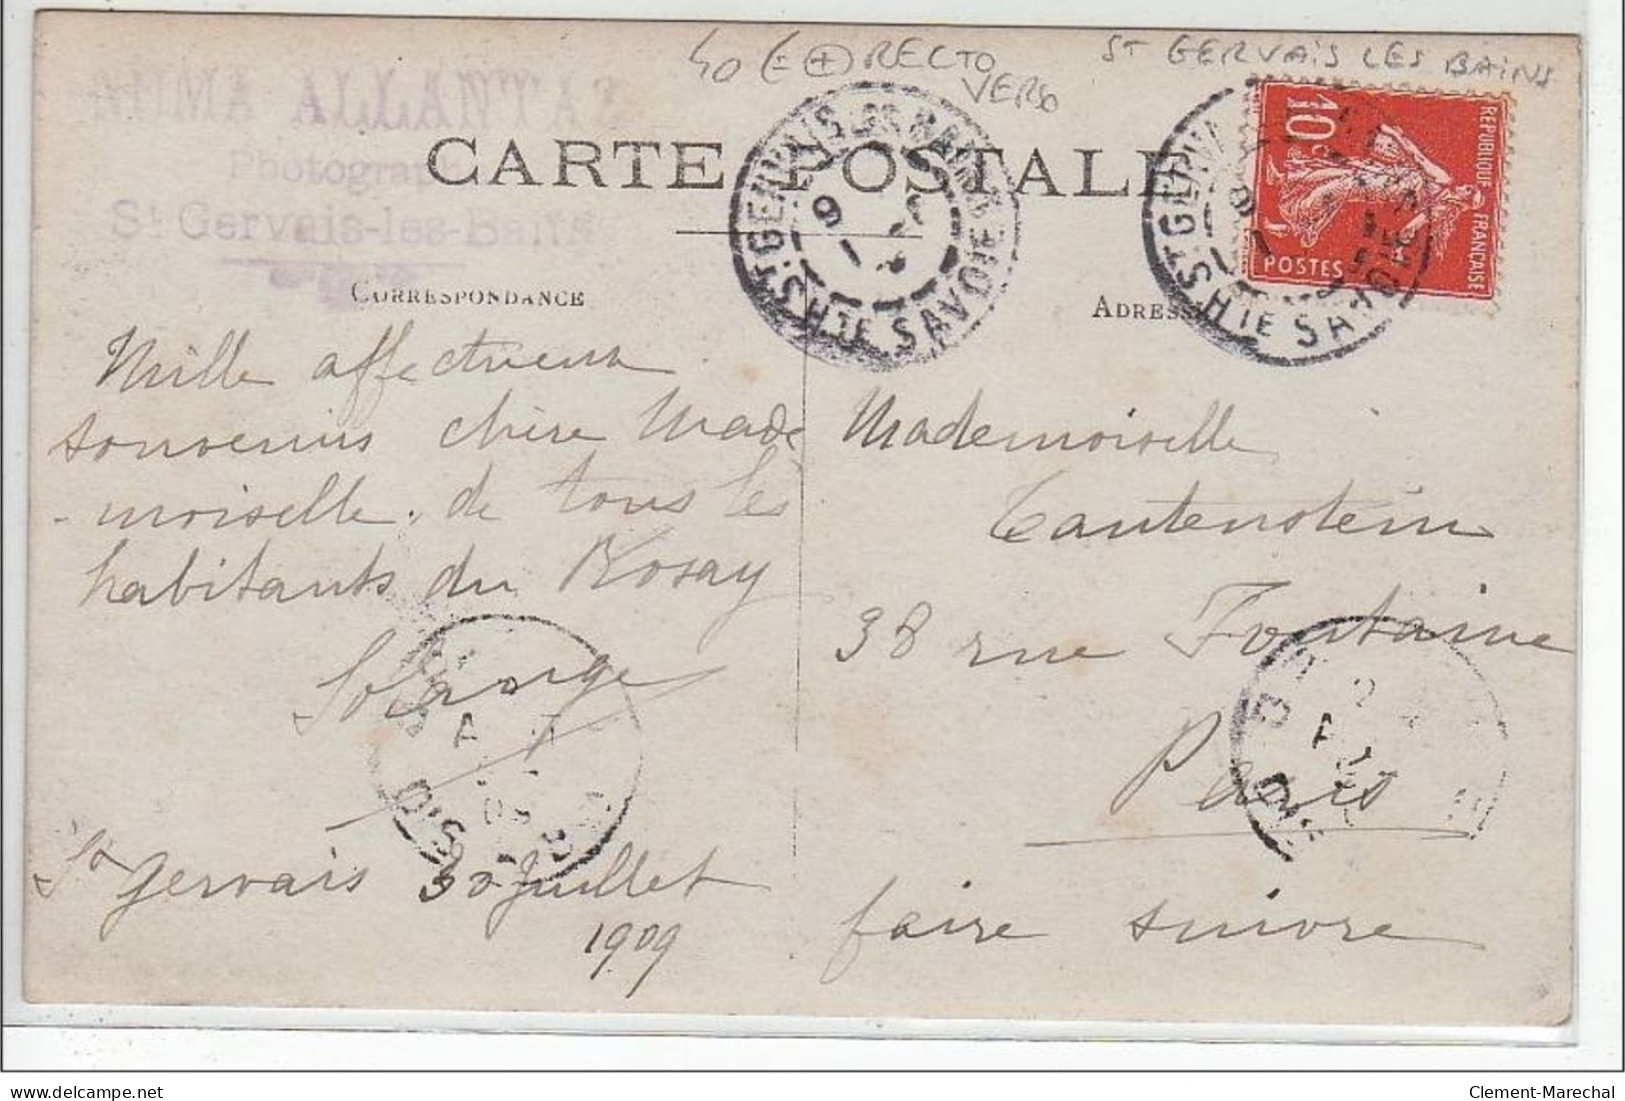 40 € (- +) RECTO
VERSO
ST GERVAIS LES BAINS
NUMA ALLANTAZ
Photograp
St Gervais-les-Bains
CARTE POSTALE
ST GERVAIS-LES-BAINS
HTE SAVOIE
ST GERVAI
HTE SAVOIE
10c
REPUBLIQUE FRANÇAISE
POSTES
CORRESPONDANCE
ADRESS
Mille affectueux
souvenirs chère Made
-moiselle, de tous les
habitants du Rosay
Solange
St Gervais 30 Juillet
1909
Mademoiselle
Tautenstein
38 rue Fontaine
Paris
faire suivre
www.delcampe.net
Clement-Marechal